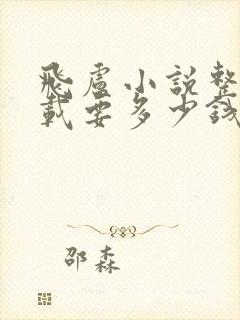 飛盧小說整
載要多少錢
邵森